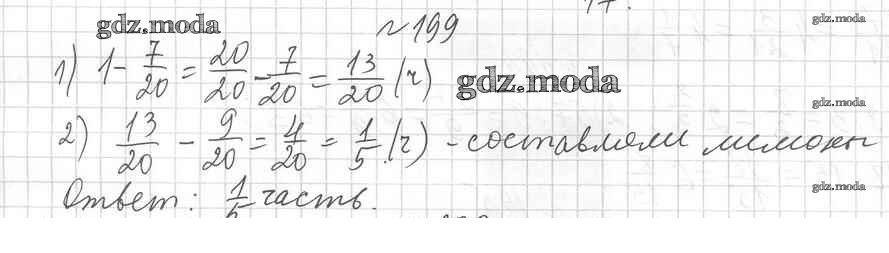 gdz.moda № 199 gdz.moda
1) 1 - 7/20 = 20/20 - 7/20 = 13/20 (ч) gdz.moda
gdz.moda
2) 13/20 - 9/20 = 4/20 = 1/5 (ч) - составляли лимоны
Ответ: 1/5 часть. gdz.moda